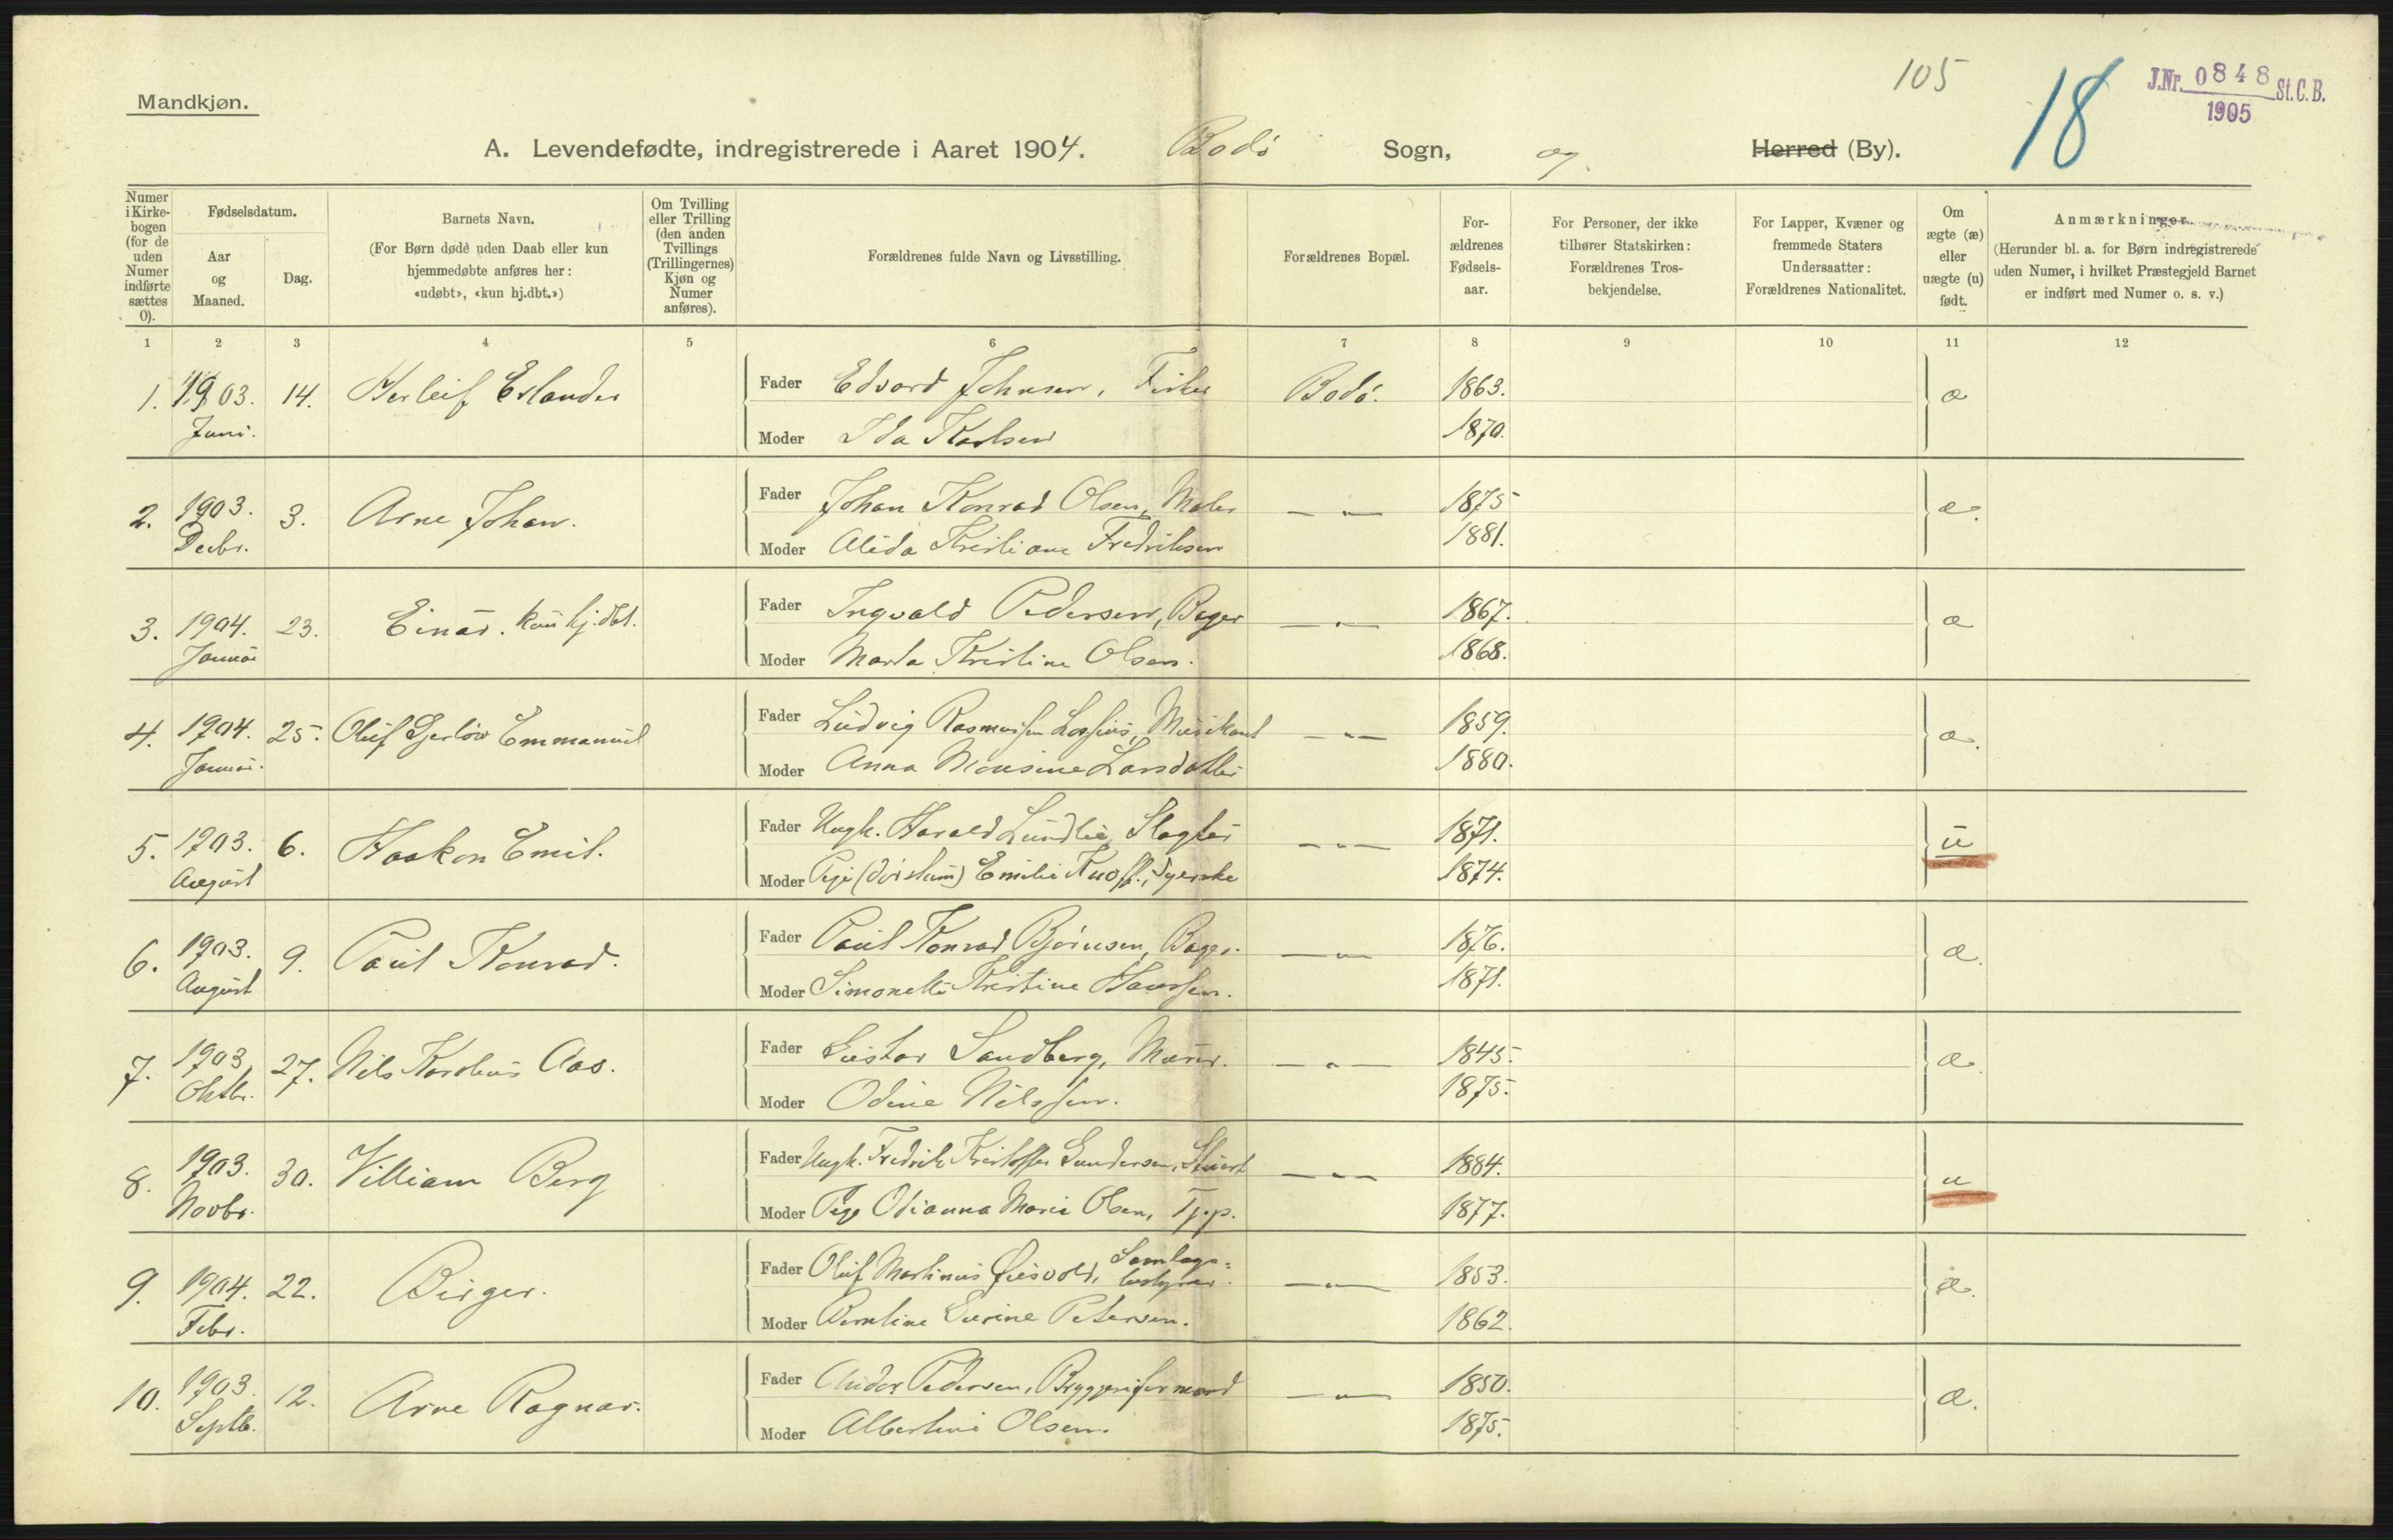 105
18
J.Nr. 0848 St.C.B.
1905
Mandkjøn.
A. Levendefødte, indregistrerede i Aaret 1904. Bodø Sogn, og Herred (By).
Numer i Kirkebogen (for de uden Numer indførte sættes 0).
Fødselsdatum.
Aar og Maaned.
Dag.
Barnets Navn.
(For Børn døde uden Daab eller kun hjemmedøbte anføres her: «udøbt», «kun hj.dbt.»)
Om Tvilling eller Trilling (den anden Tvillings (Trillingernes) Kjøn og Numer anføres).
Forældrenes fulde Navn og Livsstilling.
Forældrenes Bopæl.
Forældrenes Fødselsaar.
For Personer, der ikke tilhører Statskirken: Forældrenes Trosbekjendelse.
For Lapper, Kvæner og fremmede Staters Undersaatter: Forældrenes Nationalitet.
Om ægte (æ) eller uægte (u) født.
Anmærkninger.
(Herunder bl. a. for Børn indregistrerede uden Numer, i hvilket Præstegjeld Barnet er indført med Numer o. s. v.)
1 2 3 4 5 6 7 8 9 10 11 12
1. 1903. Juni. 14. Herleif Erlander
Fader Edvard Johnsen, Fisker Bodø. 1863. æ
Moder Ida Karlsen 1870.
2. 1903. Decbr. 3. Arne Johan.
Fader Johan Konrad Olsen, Maler — " — 1875 æ.
Moder Alida Kristiane Fredriksen 1881.
3. 1904. Januar 23. Einar. kun hj.dbt.
Fader Ingvald Pedersen, Bager — " — 1867. æ
Moder Marta Kristine Olsen. 1868.
4. 1904. Januar. 25. Oluf Emmanuel
Fader Ludvig Rasmussen Lossius, Musikant — " — 1859. æ.
Moder Anna Monsine Larsdatter 1880.
5. 1903. August 6. Haakon Emil.
Fader Ungk. Harald Lundli, Slagter — " — 1871. u
Moder Pige Emilie Knoff, Syerske 1874.
6. 1903. August 9. Paul Konrad.
Fader Paul Konrad Bjørnsen, Bager. — " — 1876. æ.
Moder Simonette Kristine Hanssen. 1871.
7. 1903. Oktbr. 27. Nils Kornelius Aas.
Fader Gustav Sandberg, Murer. — " — 1845. æ.
Moder Odine Nilssen. 1875.
8. 1903. Novbr. 30. William Berg
Fader Ungk. Fredrik Kristoffer Gundersen, Stuert — " — 1884. u
Moder Pige Odianna Marie Olsen, Tj.p. 1877.
9. 1904. Febr. 22. Birger.
Fader Oluf Martinus Øiesvold, Samlags=bestyrer. — " — 1853. æ.
Moder Berntine Petersen. 1862.
10. 1903. Septb. 12. Arne Ragnar.
Fader Andor Pedersen, Bryggeriformand — " — 1850. æ.
Moder Albertine Olsen. 1875.